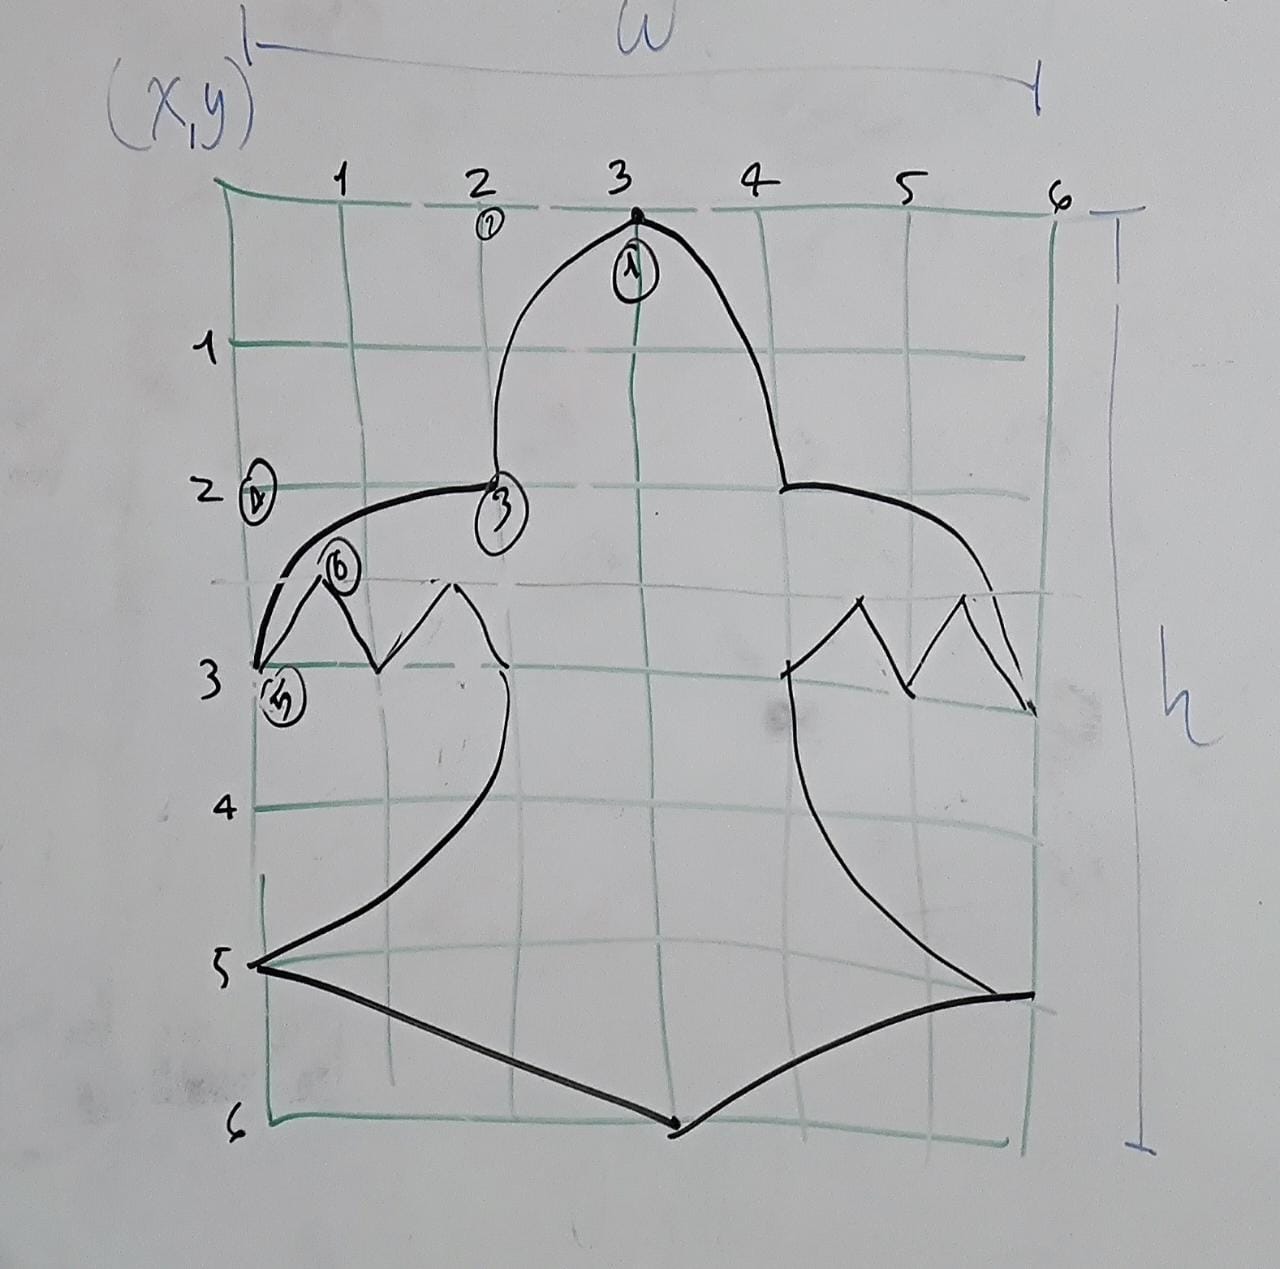 w
(x,y)
1 2 3 4 5 6
②
①
1
2 ④ ③
⑥
3 ⑤
h
4
5
6